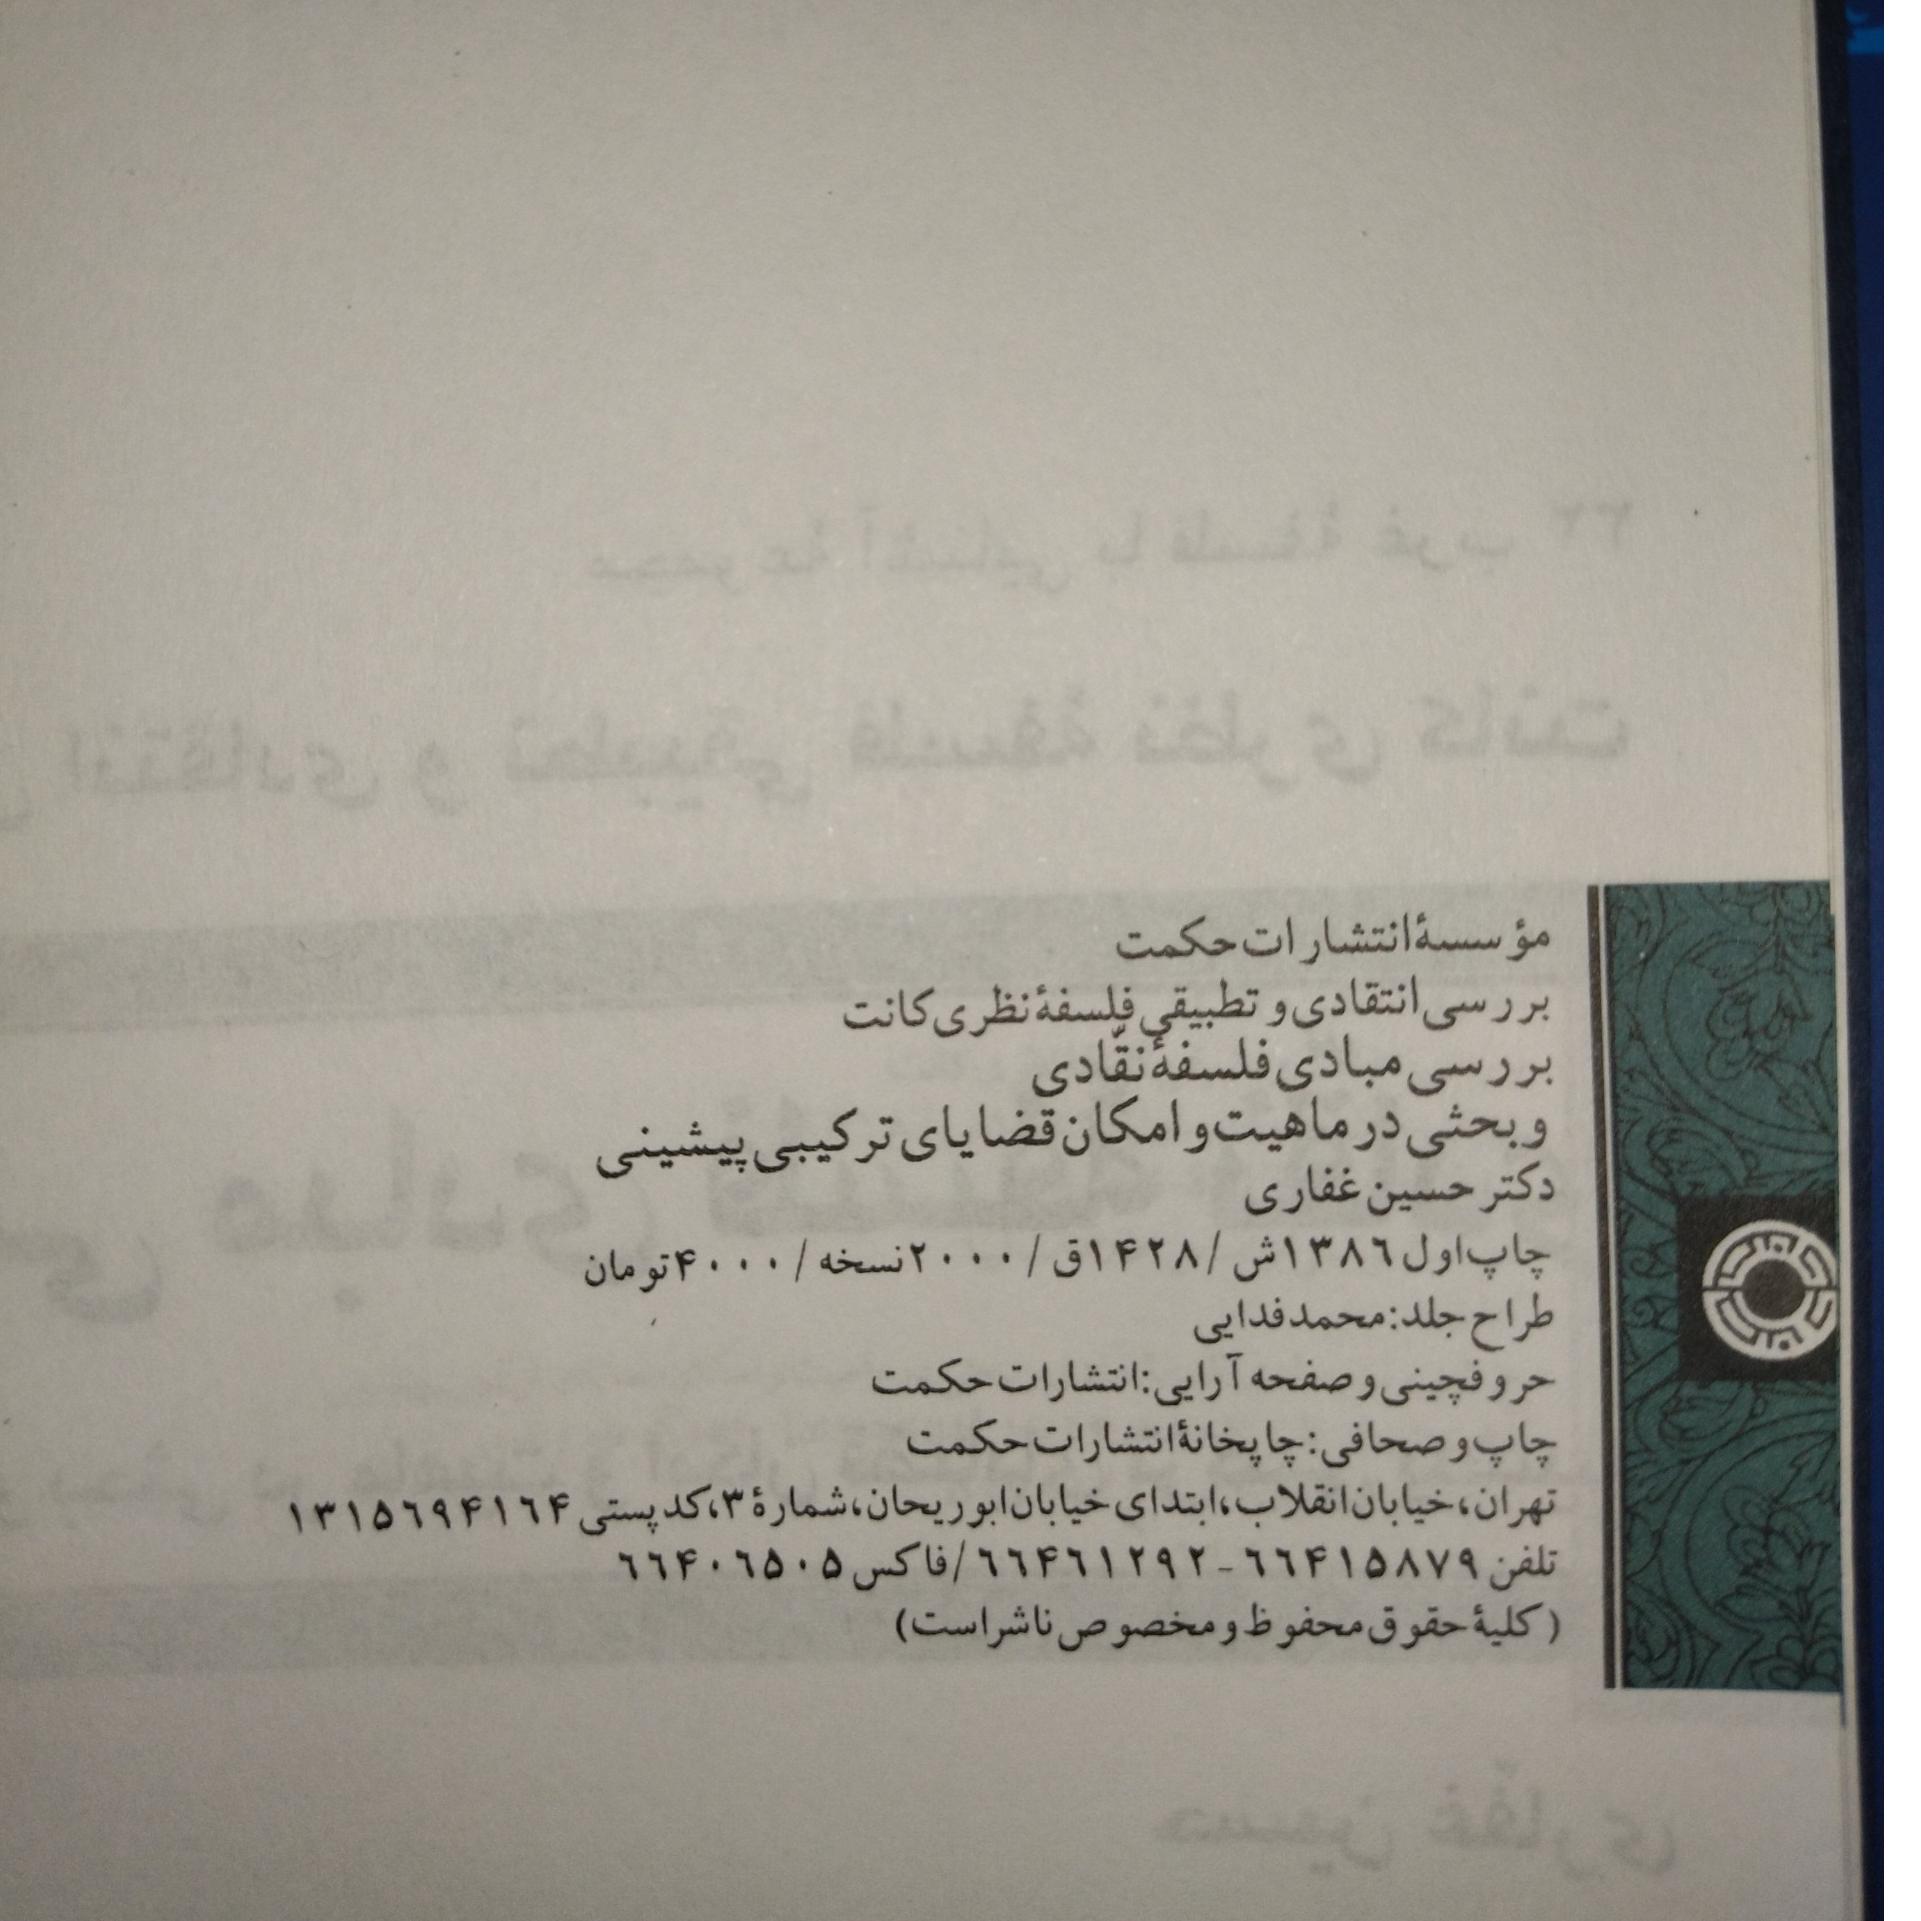 مؤسسهٔ انتشارات حکمت
بررسی انتقادی و تطبیقی فلسفهٔ نظری کانت
بررسی مبادی فلسفهٔ نقّادی
و بحثی در ماهیت و امکان قضایای ترکیبی پیشینی
دکتر حسین غفاری
چاپ اول ۱۳۸۶ش / ۱۴۲۸ق / ۲۰۰۰ نسخه / ۴۰۰۰ تومان
طراح جلد: محمد فدایی
حروفچینی و صفحه آرایی: انتشارات حکمت
چاپ و صحافی: چاپخانهٔ انتشارات حکمت
تهران، خیابان انقلاب، ابتدای خیابان ابوریحان، شمارهٔ ۳، کد پستی ۱۳۱۵۶۹۴۱۶۴
تلفن ۶۶۴۱۵۸۷۹ - ۶۶۴۶۱۲۹۲ / فاکس ۶۶۴۰۶۵۰۵
(کلیهٔ حقوق محفوظ و مخصوص ناشر است)